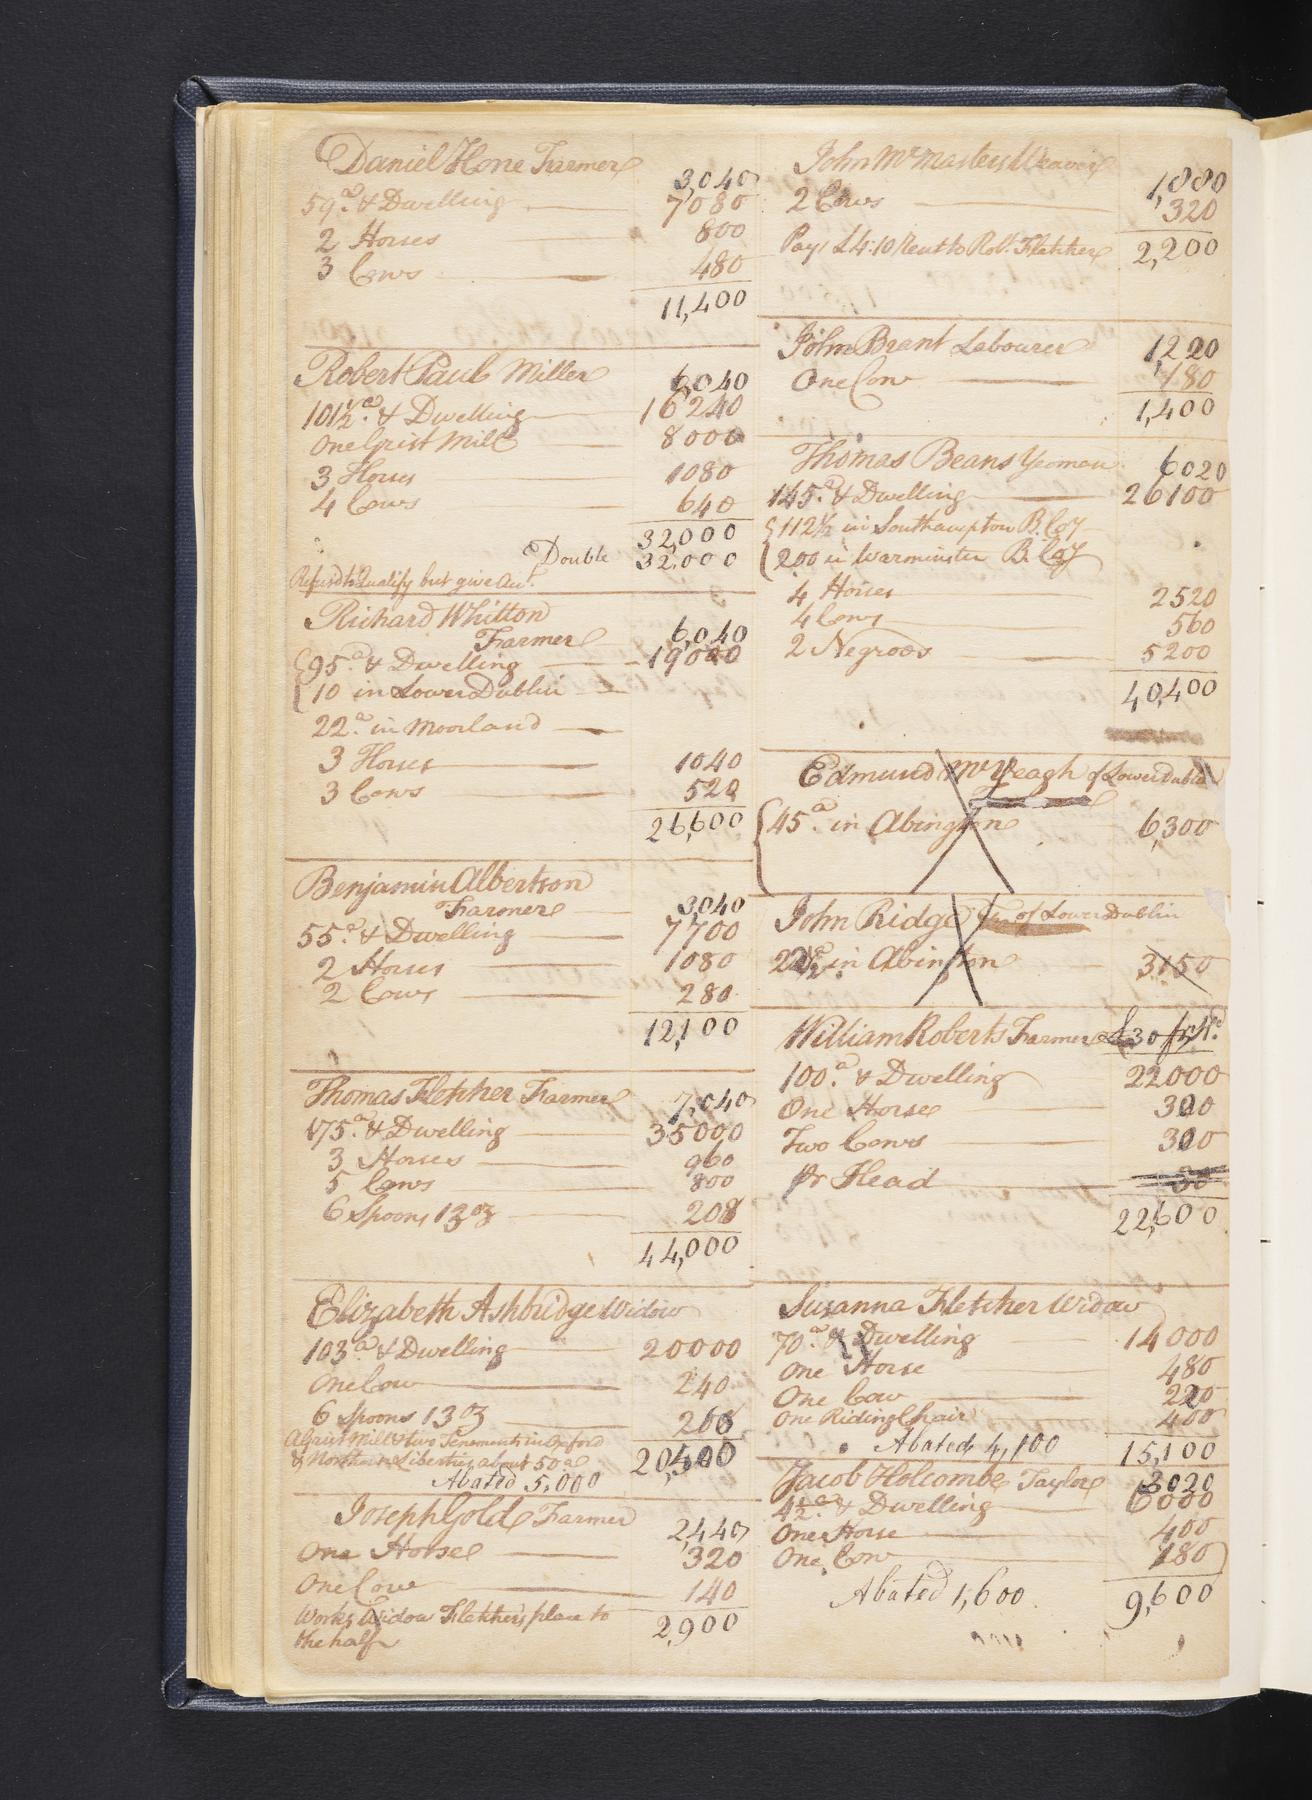 Daniel Hone Farmer 3,040
59.a & Dwelling 7080
2 Horses 800
3 Cows 480
11,400
Robert Paul Miller 6,040
101½.a & Dwelling 16240
One Grist Mill 8000
3 Horses 1080
4 Cows 640
32,000
Double 32,000
Refus'd to Qualify but give Acct.
Richard Whitton
Farmer 6,040
95.a & Dwelling 19000
10 in Lower Dublin
22.a in Moorland
3 Horses 1040
3 Cows 520
26,600
Benjamin Albertson
Farmer 3,040
55.a & Dwelling 7700
2 Horses 1080
2 Cows 280
12,100
Thomas Fletcher Farmer 7,040
175.a & Dwelling 35000
3 Horses 960
5 Cows 800
6 Spoons 13 oz 208
44,000
Elizabeth Ashbridge Widow
103.a & Dwelling 20000
One Cow 240
6 Spoons 13 oz
A Grist Mill & two Tenements in Oxford
& Northern Liberties about 50.a
Abated 5,000
Joseph Gold Farmer 2,440
One Horse 320
One Cow 140
Works Widow Fletchers place to
the half 2,900
John McMasters Weaver 1,880
2 Cows 320
Pays £4:10 Rent to Robt. Fletcher 2,200
John Brant Labourer 1,220
One Cow 180
1,400
Thomas Beans Yeoman 6020
145.a & Dwelling 26100
112½ in Southampton B. Coy
200 in Warminster B. Coy
4 Horses 2520
4 Cows 560
2 Negroes 5200
40,400
Edmund McVeagh of Lower Dublin
45.a in Abington 6,300
John Ridge of Lower Dublin
in Abington 3150
William Roberts Farmer
100.a & Dwelling 22000
One Horse 300
Two Cows 300
Pr Head 30
22,600
Susanna Fletcher Widow
70.a & Dwelling 14000
One Horse 480
One Cow 220
One Riding Chair 400
Abated 4,100 15,100
Jacob Holcombe Taylor 3020
42.a & Dwelling 6000
One Horse 400
One Cow 180
Abated 1,600 9,600